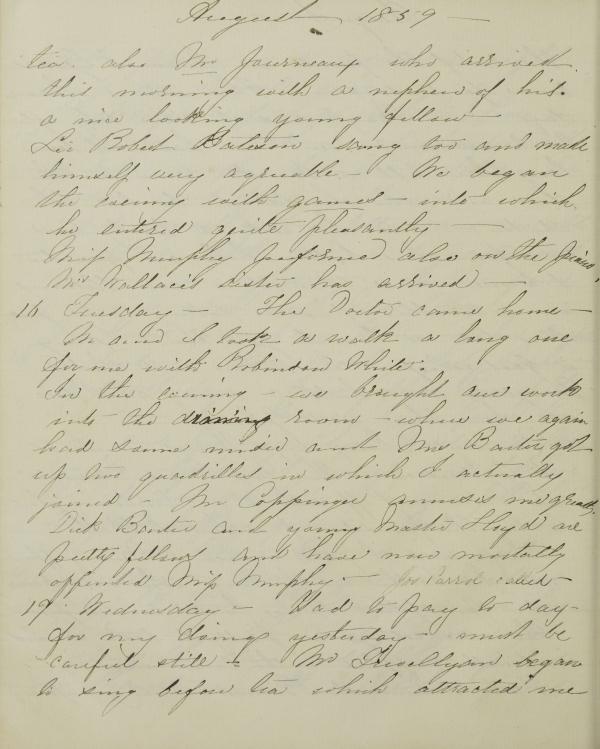 August 1859
tea. also Mr Journeaux who arrived
this morning with a nephew of his.
a nice looking young fellow
Sir Robert Bateson sang too and made
himself very agreeable - We began
the evening with games - into which
he entered quite pleasantly
Miss Murphy performed also on the Piano,
Mrs Wallace's sister has arrived
16 Tuesday - The Doctor came home -
M and I took a walk a long one
for me with Robinson White.
In the evening - we brought our work
into the drawing room - where we again
had some music and Mrs Baxter got
up two quadrilles in which I actually
joined - Mr Coppinger amuses me greatly.
Dick Baxter and young Master Lloyd are
pretty fellows and have now mortally
offended Miss Murphy - called -
17 Wednesday - Had to pay to day -
for my doings yesterday - must be
careful still - Mr began
to sing before tea which attracted me